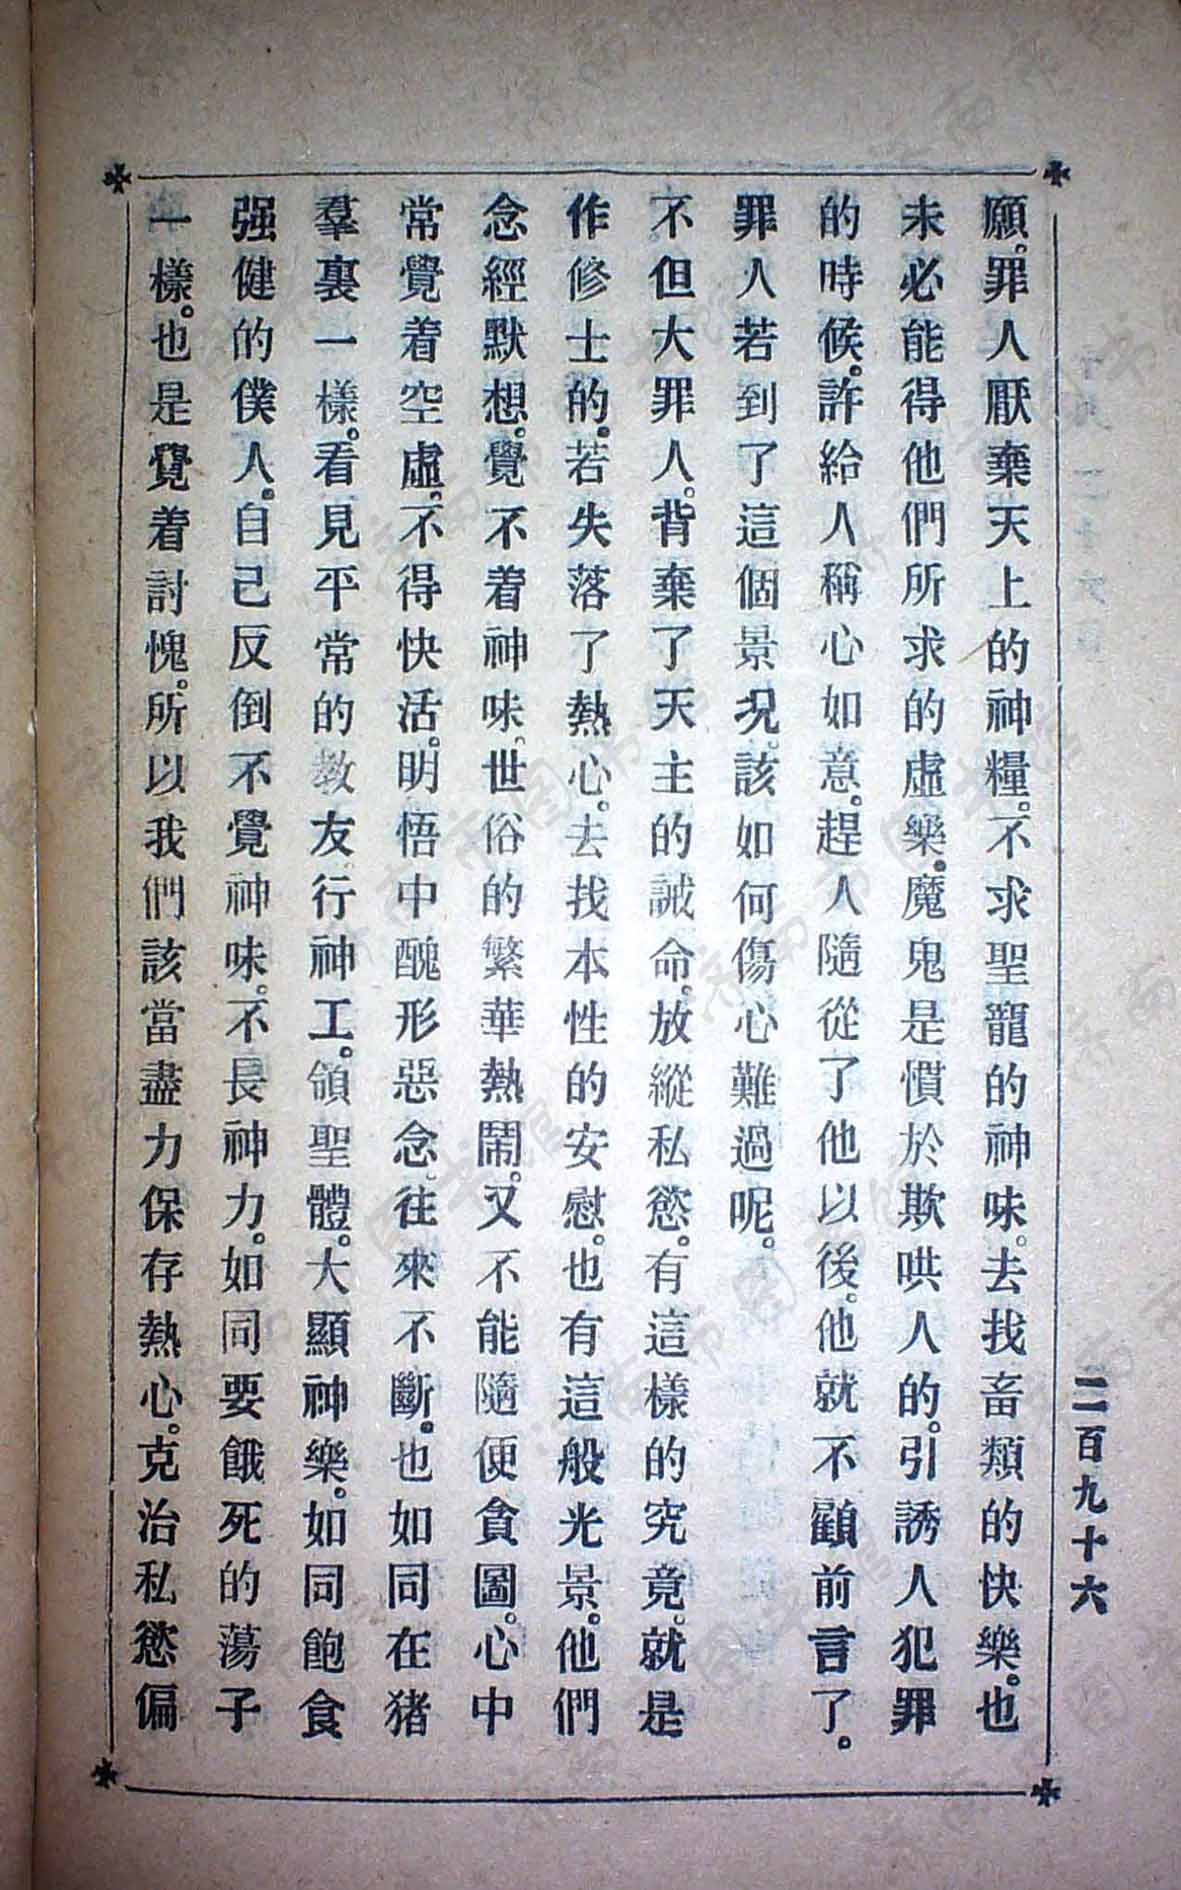 願。罪人厭棄天上的神糧。不求聖寵的神味。去找畜類的快樂。也
未必能得他們所求的虛樂。魔鬼是慣於欺哄人的。引誘人犯罪
的時候。許給人稱心如意。趕人隨從了他以後。他就不顧前言了。
罪人若到了這個景況。該如何傷心難過呢。
不但大罪人。背棄了天主的誡命。放縱私慾。有這樣的究竟。就是
作修士的。若失落了熱心。去找本性的安慰。也有這般光景。他們
念經默想。覺不着神味。世俗的繁華熱鬧。又不能隨便貪圖。心中
常覺着空虛。不得快活。明悟中醜形惡念。往來不斷。也如同在猪
羣裏一樣。看見平常的教友。行神工。領聖體。大顯神樂。如同飽食
强健的僕人。自己反倒不覺神味。不長神力。如同要餓死的蕩子
一樣。也是覺着討愧。所以我們該當盡力保存熱心。克治私慾偏
二百九十六